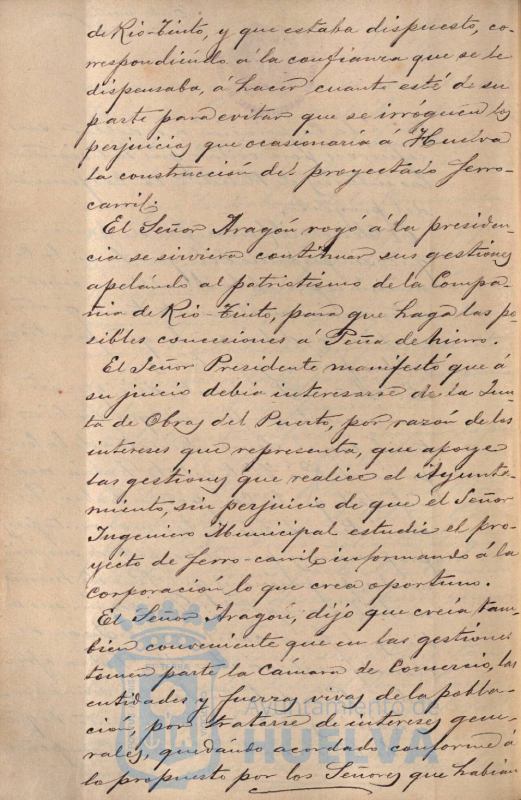 de Rio-Tinto, y que estaba dispuesto, co-
rrespondiéndo á la confianza que se le
dispensaba, á hacer cuanto esté de su
parte para evitar que se irróguen los
perjuicios que ocasionaría á Huelva
la construcción del proyectado ferro-
carril.
El Señor Aragón rogó á la presiden-
cia se sirviera continuar sus gestiones
apelándo al patriotismo de la Compa-
ñia de Rio-Tinto, para que haga las po-
sibles concesiones á Peña de hierro.
El Señor Presidente manifestó que á
su juicio debia interesarse de la Jun-
ta de Obras del Puerto, por razón de los
intereses que representa, que apoye
las gestiones que realice el Ayunta-
miento, sin perjuicio de que el Señor
Ingeniero Municipal estudie el pro-
yécto de ferro-carril informando á la
Corporación lo que crea oportuno.
El Señor Aragón, dijo que creía tam-
bien conveniente que en las gestiones
tomen parte la Cámara de Comercio, las
entidades y fuerzas vivas de la pobla-
ción, por tratarse de intereses gene-
rales, quedándo acordado conforme á
lo propuesto por los Señores que habian
Ayuntamiento de
HUELVA